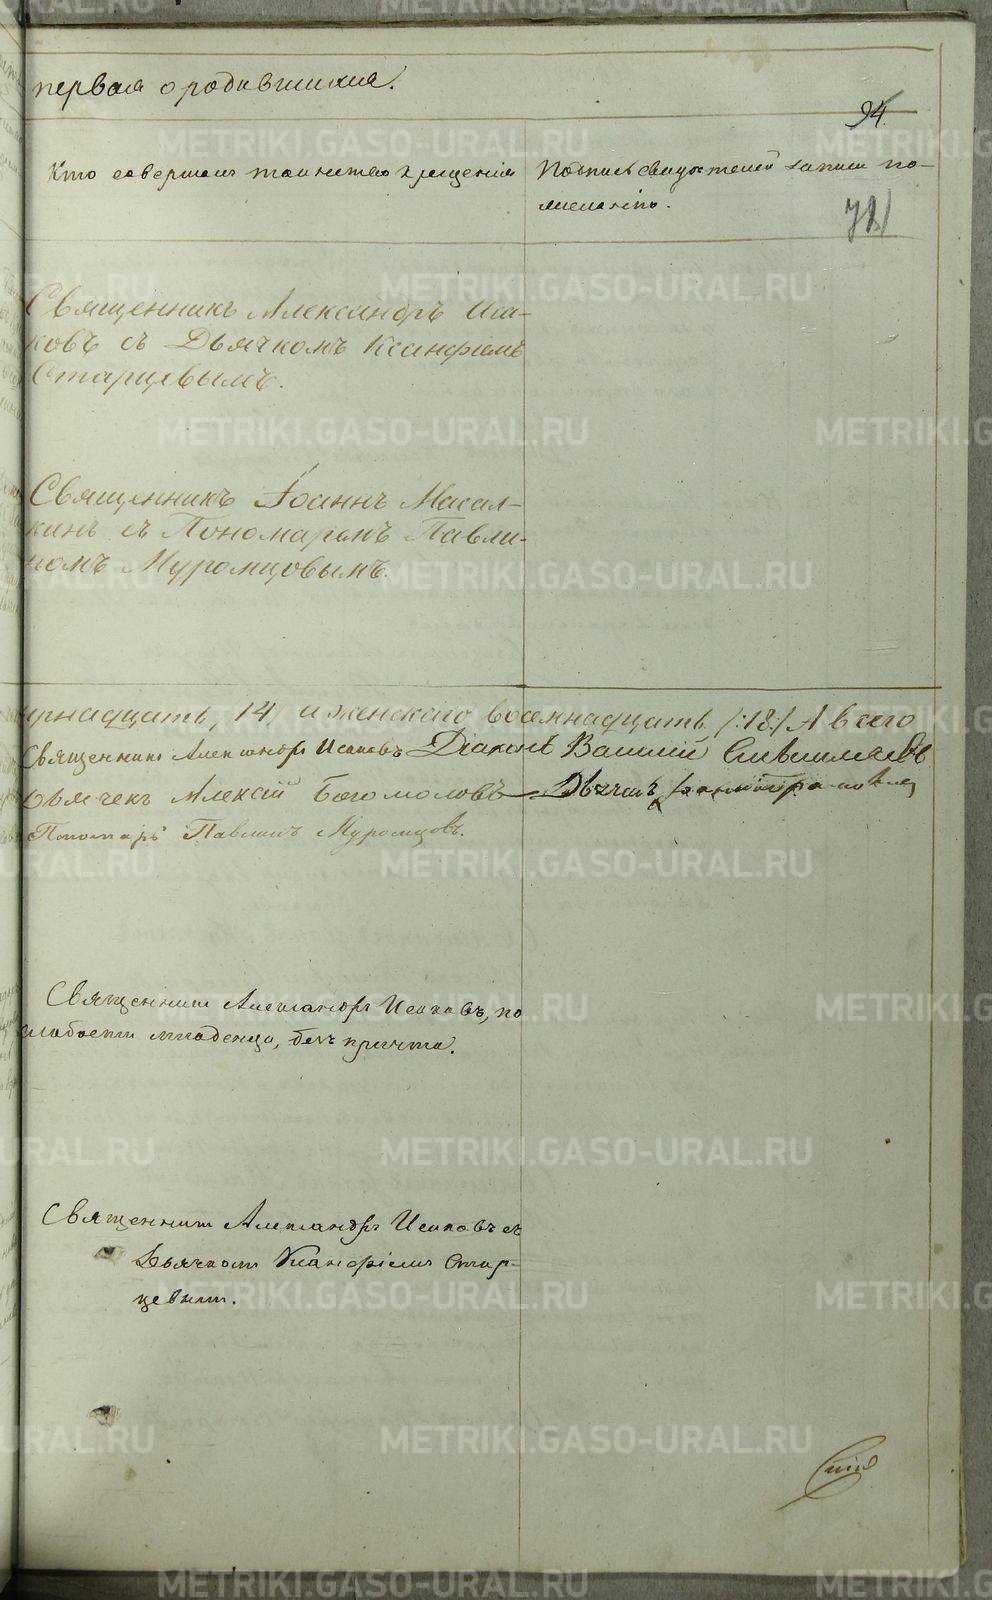 первая о родившихся.
94
Кто совершалъ таинство крещенія
Подпись свидѣтелей записи по-
желанію.
Священникъ Александръ Иса-
ковъ съ Дьячкомъ Ксанфіемъ
Старцевымъ.
Священникъ Іоаннъ Масал-
кинъ съ Пономаремъ Павли-
номъ Муромцовымъ.
рнадцать, 14 и женскаго восемнадцать /:18:/ А всего
Священникъ Александръ Исаковъ Діаконъ Василій
Дьячекъ Алексій Богомоловъ Дьячекъ
Пономарь Павлинъ Муромцовъ.
Священникъ Александръ Исаковъ, по
слабости младенца, безъ причта.
Священникъ Александръ Исаковъ съ
Дьячкомъ Ксанфіемъ Стар-
цевымъ.
METRIKI.GASO-URAL.RU